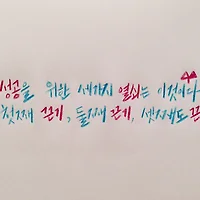 성공을 위한 세가지 열쇠는 이것이다
첫째 끈기, 둘째 끈기, 셋째도 끈